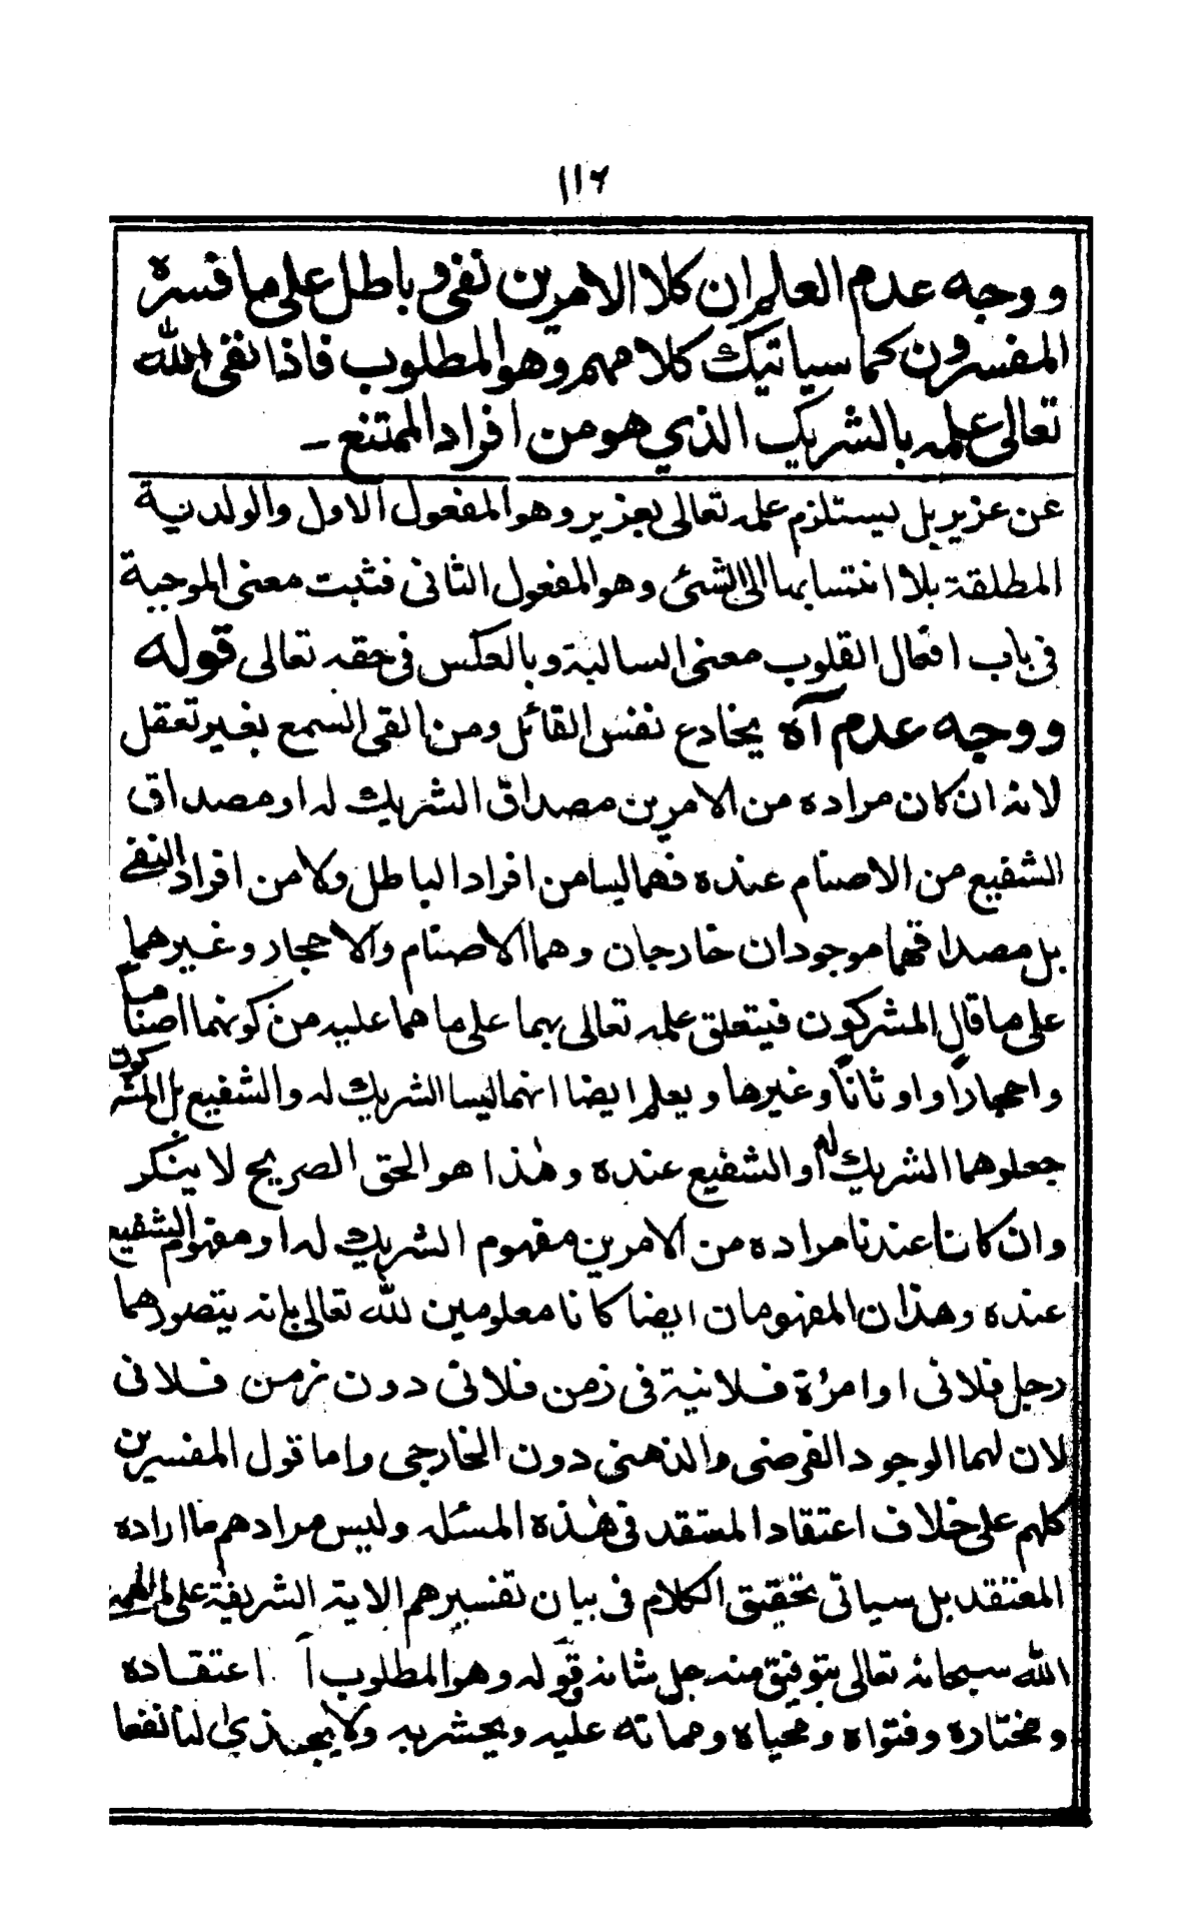 ١١٦
ووجه عدم العلم ان كلا الامرين نفي وباطل على ما فسره
المفسرون كما سياتيك كلامهم وهو المطلوب فاذا نفى الله
تعالى علمه بالشريك الذي هو من افراد الممتنع ـ
عن عزير بل يستلزم علمه تعالى بعزير وهو المفعول الاول والولدنية
المطلقة بلا انتسابها الى الشئ وهو المفعول الثانى فثبت معنى الموجبة
فى باب افعال القلوب معنى السالبة وبالعكس فى حقه تعالى قوله
ووجه عدم آه يخادع نفس القائل ومن القى السمع بغير تعقل
لانه ان كان مراده من الامرين مصداق الشريك له او مصداق
الشفيع من الاصنام عنده فهما ليسا من افراد الباطل ولا من افراد النفے
بل مصداقهما موجودان خارجان وهما الاصنام والاحجار وغيرهما
على ما قال المشركون فيتعلق علمه تعالى بهما على ما هما عليه من كونهما اصناما
واحجارًا واوثانًا وغيرها ويعلم ايضا انهما ليسا الشريك له والشفيع بل المشركون
جعلوهما الشريك له او الشفيع عنده وهٰذا هو الحق الصريح لا ينكر
وان كانا عندنا مراده من الامرين مفهوم الشريك له او مفهوم الشفيع
عنده وهذان المفهومان ايضا كانا معلومين لله تعالى بانه يتصورهما
رجل فلانى او امرءة فلانية فى زمن فلانى دون زمن فلانى
لان لهما الوجود الفرضى والذهنى دون الخارجى واما قول المفسرين
كلهم على خلاف اعتقاد المستقد فى هٰذه المسئله وليس مرادهم ما اراده
المعتقد بل سياتى تحقيق الكلام فى بيان تفسيرهم الاية الشريفة على
الله سبحانه تعالى بتوفيق منه جل شانه قوله وهو المطلوب آ اعتقاده
ومختاره وفتواه ومحياه ومماته عليه ويحشر به ولا يجذى لنا نفعا